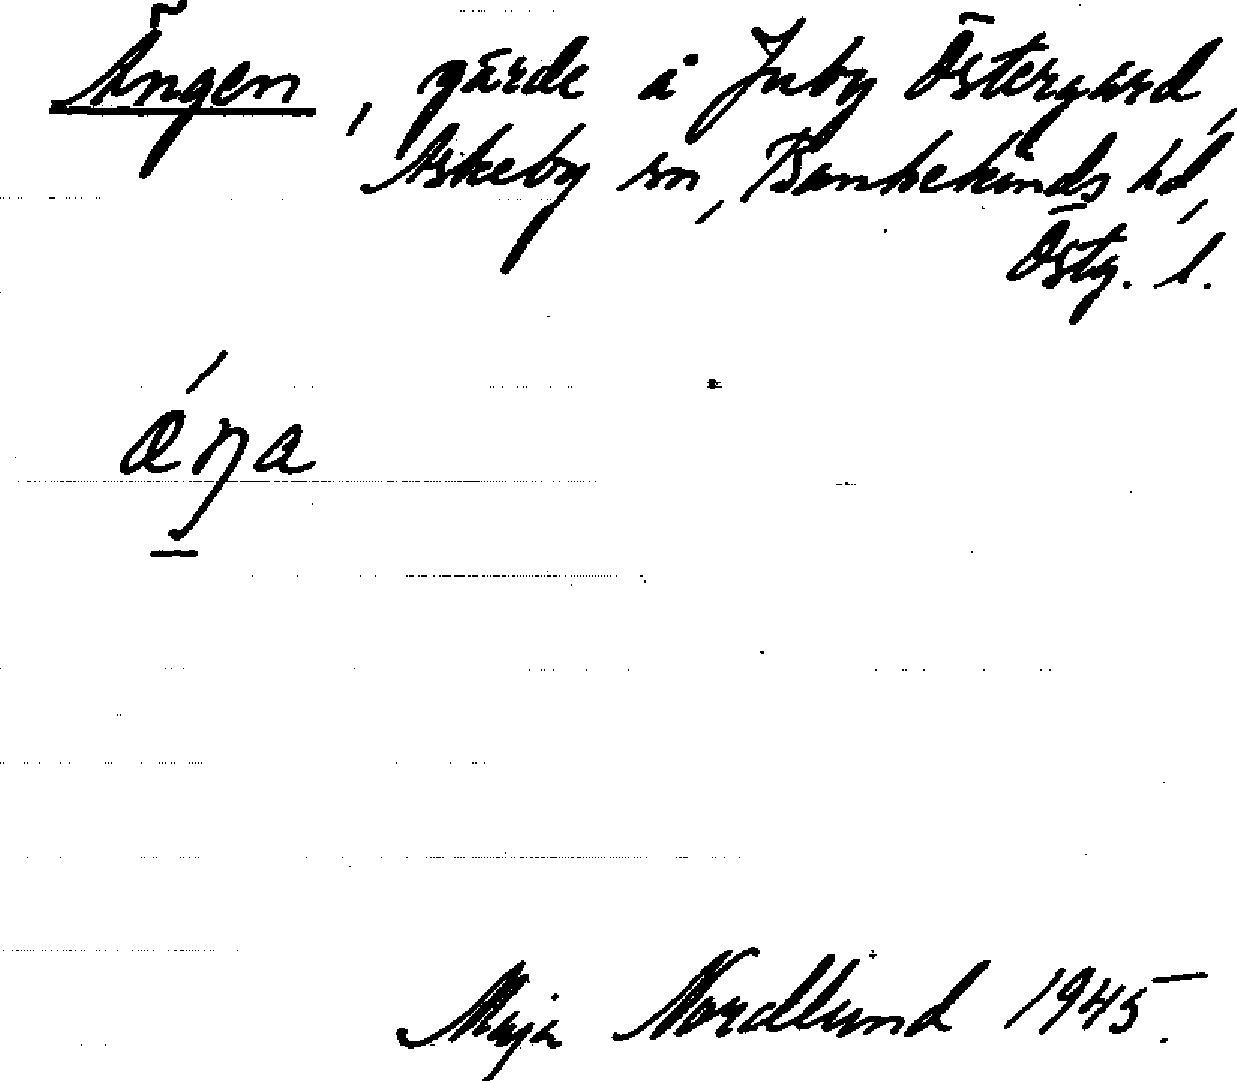 Ängen, gärde å Juby Östergård,
Askeby sn, Bankekinds hd,
Östg. l.
æ´ŋa
Maja Nordlund 1945.